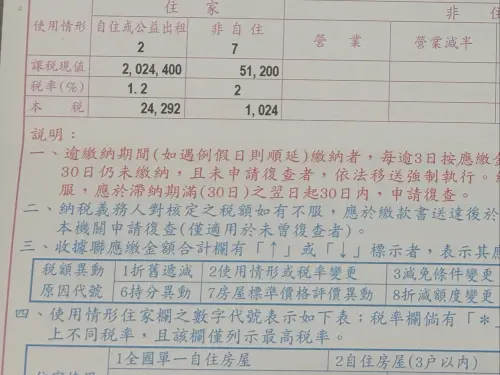 住 家 非 住
使用情形 自住或公益出租 非自住 營 業 營業減半
2 7
課稅現值 2,024,400 51,200
稅率(%) 1.2 2
本 稅 24,292 1,024
說明：
一、逾繳納期間(如遇例假日則順延)繳納者，每逾3日按應繳金
30日仍未繳納，且未申請復查者，依法移送強制執行。
服，應於滯納期滿(30日)之翌日起30日內，申請復查。
二、納稅義務人對核定之稅額如有不服，應於繳款書送達後於
本機關申請復查(僅適用於未曾復查者)。
三、收據聯應繳金額合計欄有「↑」或「↓」標示者，表示其應
稅額異動 1折舊遞減 2使用情形或稅率變更 3減免條件變更
原因代號 6持分異動 7房屋標準價格評價異動 8折減額度變更
四、使用情形住家欄之數字代號表示如下表；稅率欄倘有「*
上不同稅率，且該欄僅列示最高稅率。
1全國單一自住房屋 2自住房屋(3戶以內)